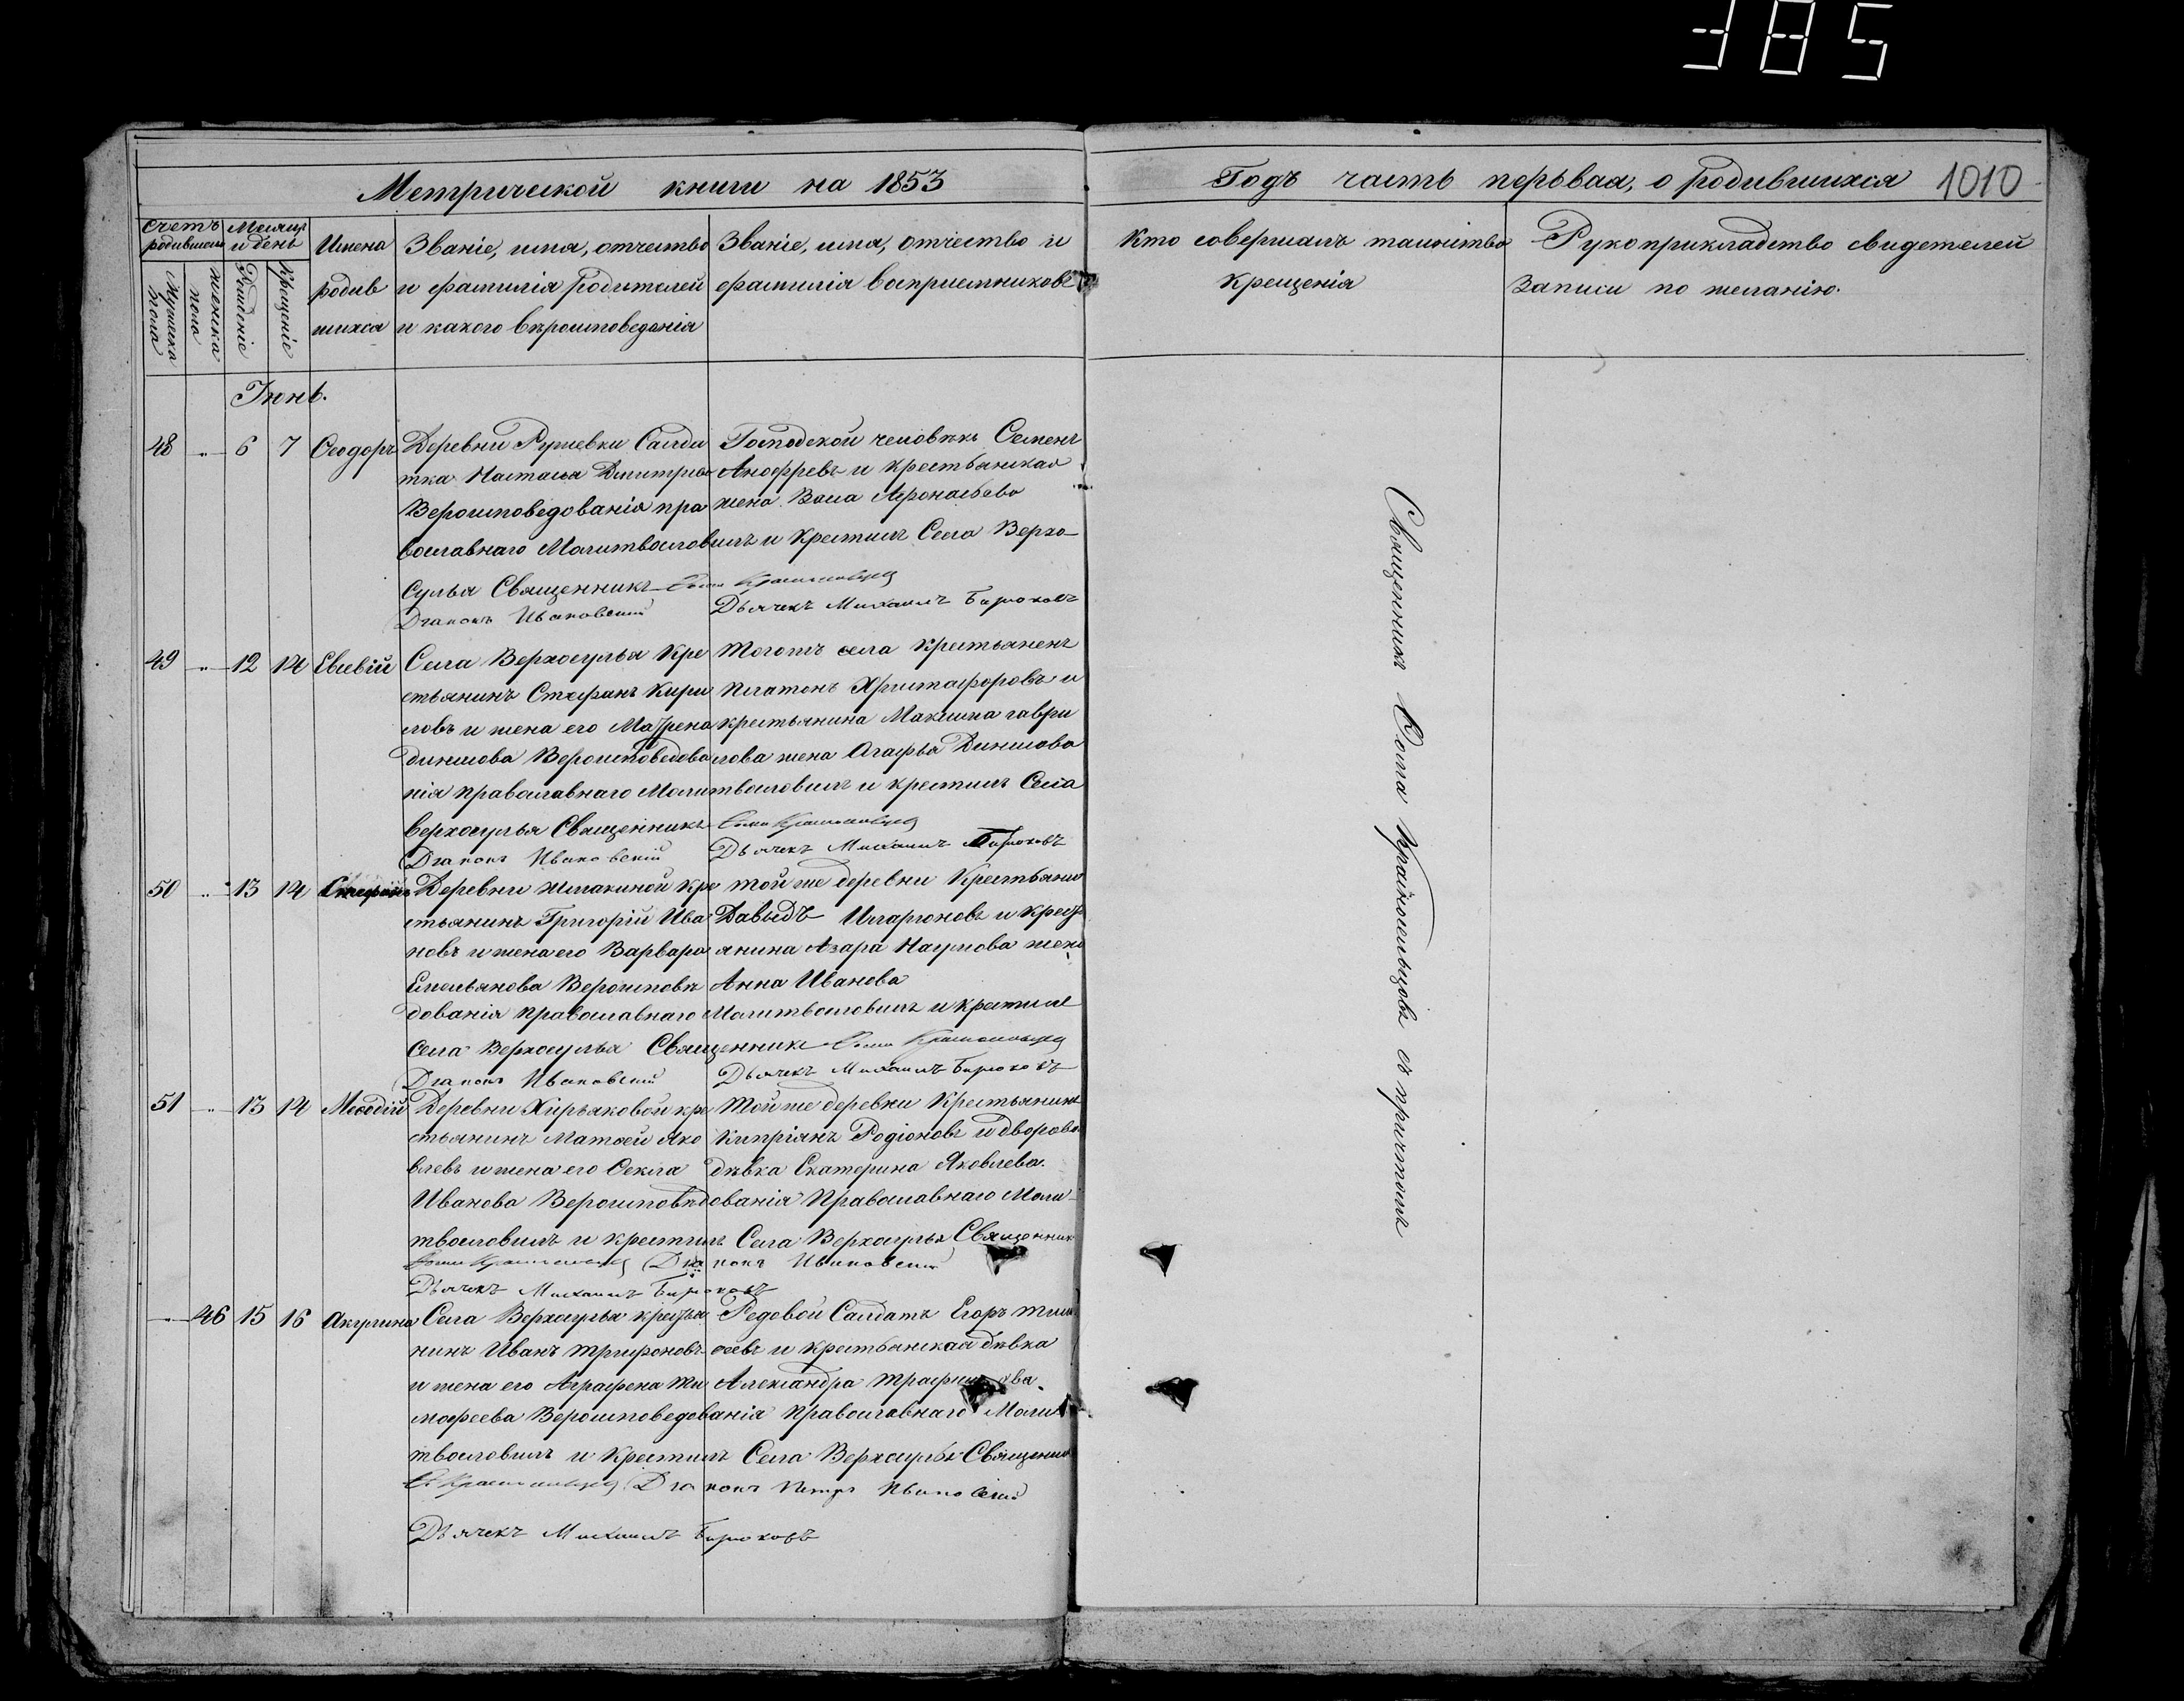 385
Метрической книги на 1853
Годъ часть перьвая, о родившихся 1010
Счетъ родившихся
Мужеска пола
женска пола
Месяцъ и день
Рожденіе
Крещеніе
Имена родив
шихся
Званіе, имя, отчество
и фамилія родителей
и какого вероисповеданія
Званіе, имя, отчество и
фамилія восприемниковъ
Кто совершалъ таинство
крещенія
Рукоприкладство свидетелей
записи по желанію.
Іюнь.
48 " 6 7 Ѳеодоръ
Деревни Салда
тка Настасья Дмитріева
Вероисповедованія пра
вославнаго Молитвословилъ и Крестилъ Села Верхо-
сулья Священникъ
Диаконъ Ивановский
Господской человѣкъ Семенъ
Анофревъ и крестьянская
жена Афонасьева
Дьячекъ Михаилъ Бирюковъ
49 " 12 14 Евсевій
Села Верхосулья Кре
стьянинъ Стефанъ Кири
ловъ и жена его Матрена
Динисова Вероисповедова
нія православнаго Молитвословилъ и крестилъ Села
Верхосулья Священникъ
Диаконъ Ивановский
Тогожъ села крестьяненъ
Платонъ Христафоровъ и
крестьянина Максима гаври
лова жена Агафья Динисова
Дьячекъ Михаилъ Бирюковъ
50 " 13 14 Стефанъ
Деревни Шмакиной Кре
стьянинъ Григорій Ива
новъ и жена его Варвара
Емельянова Вероисповѣ
дованія православнаго Молитвословилъ и крестилъ
села Верхосулья Священникъ
Диаконъ Ивановский
той же деревни Крестьянинъ
Давыдъ Иларионовъ и крест
янина Азара Наумова жена
Анна Иванова
Дьячекъ Михаилъ Бирюковъ
51 " 13 14 Меѳодій
Деревни Хирьяковой кре
стьянинъ Матвей Яко
влевъ и жена его Ѳекла
Иванова Вероисповѣдованія Православнаго Моли-
твословилъ и крестилъ Села Верхосулья Священник
Диаконъ Ивановский
Дьячекъ Михаилъ Бирюковъ
Той же деревни Крестьянинъ
Кипріянъ Родіоновъ и дворовая
дѣвка Екатерина Яковлева.
" 46 15 16 Акулина
Села Верхосулья крестья
нинъ Иванъ Трифоновъ
и жена его Аграфена Ти
мофеева Вероисповедованія православнаго Моли
твословилъ и Крестилъ Села Верхосулья Священник
Диаконъ Петръ Ивановский
Дьячекъ Михаилъ Бирюковъ
Редовой Салдатъ Егоръ Тим
ѳеевъ и крестьянская дѣвка
Александра
Священникъ Ѳома Крайносельцовъ съ причтомъ